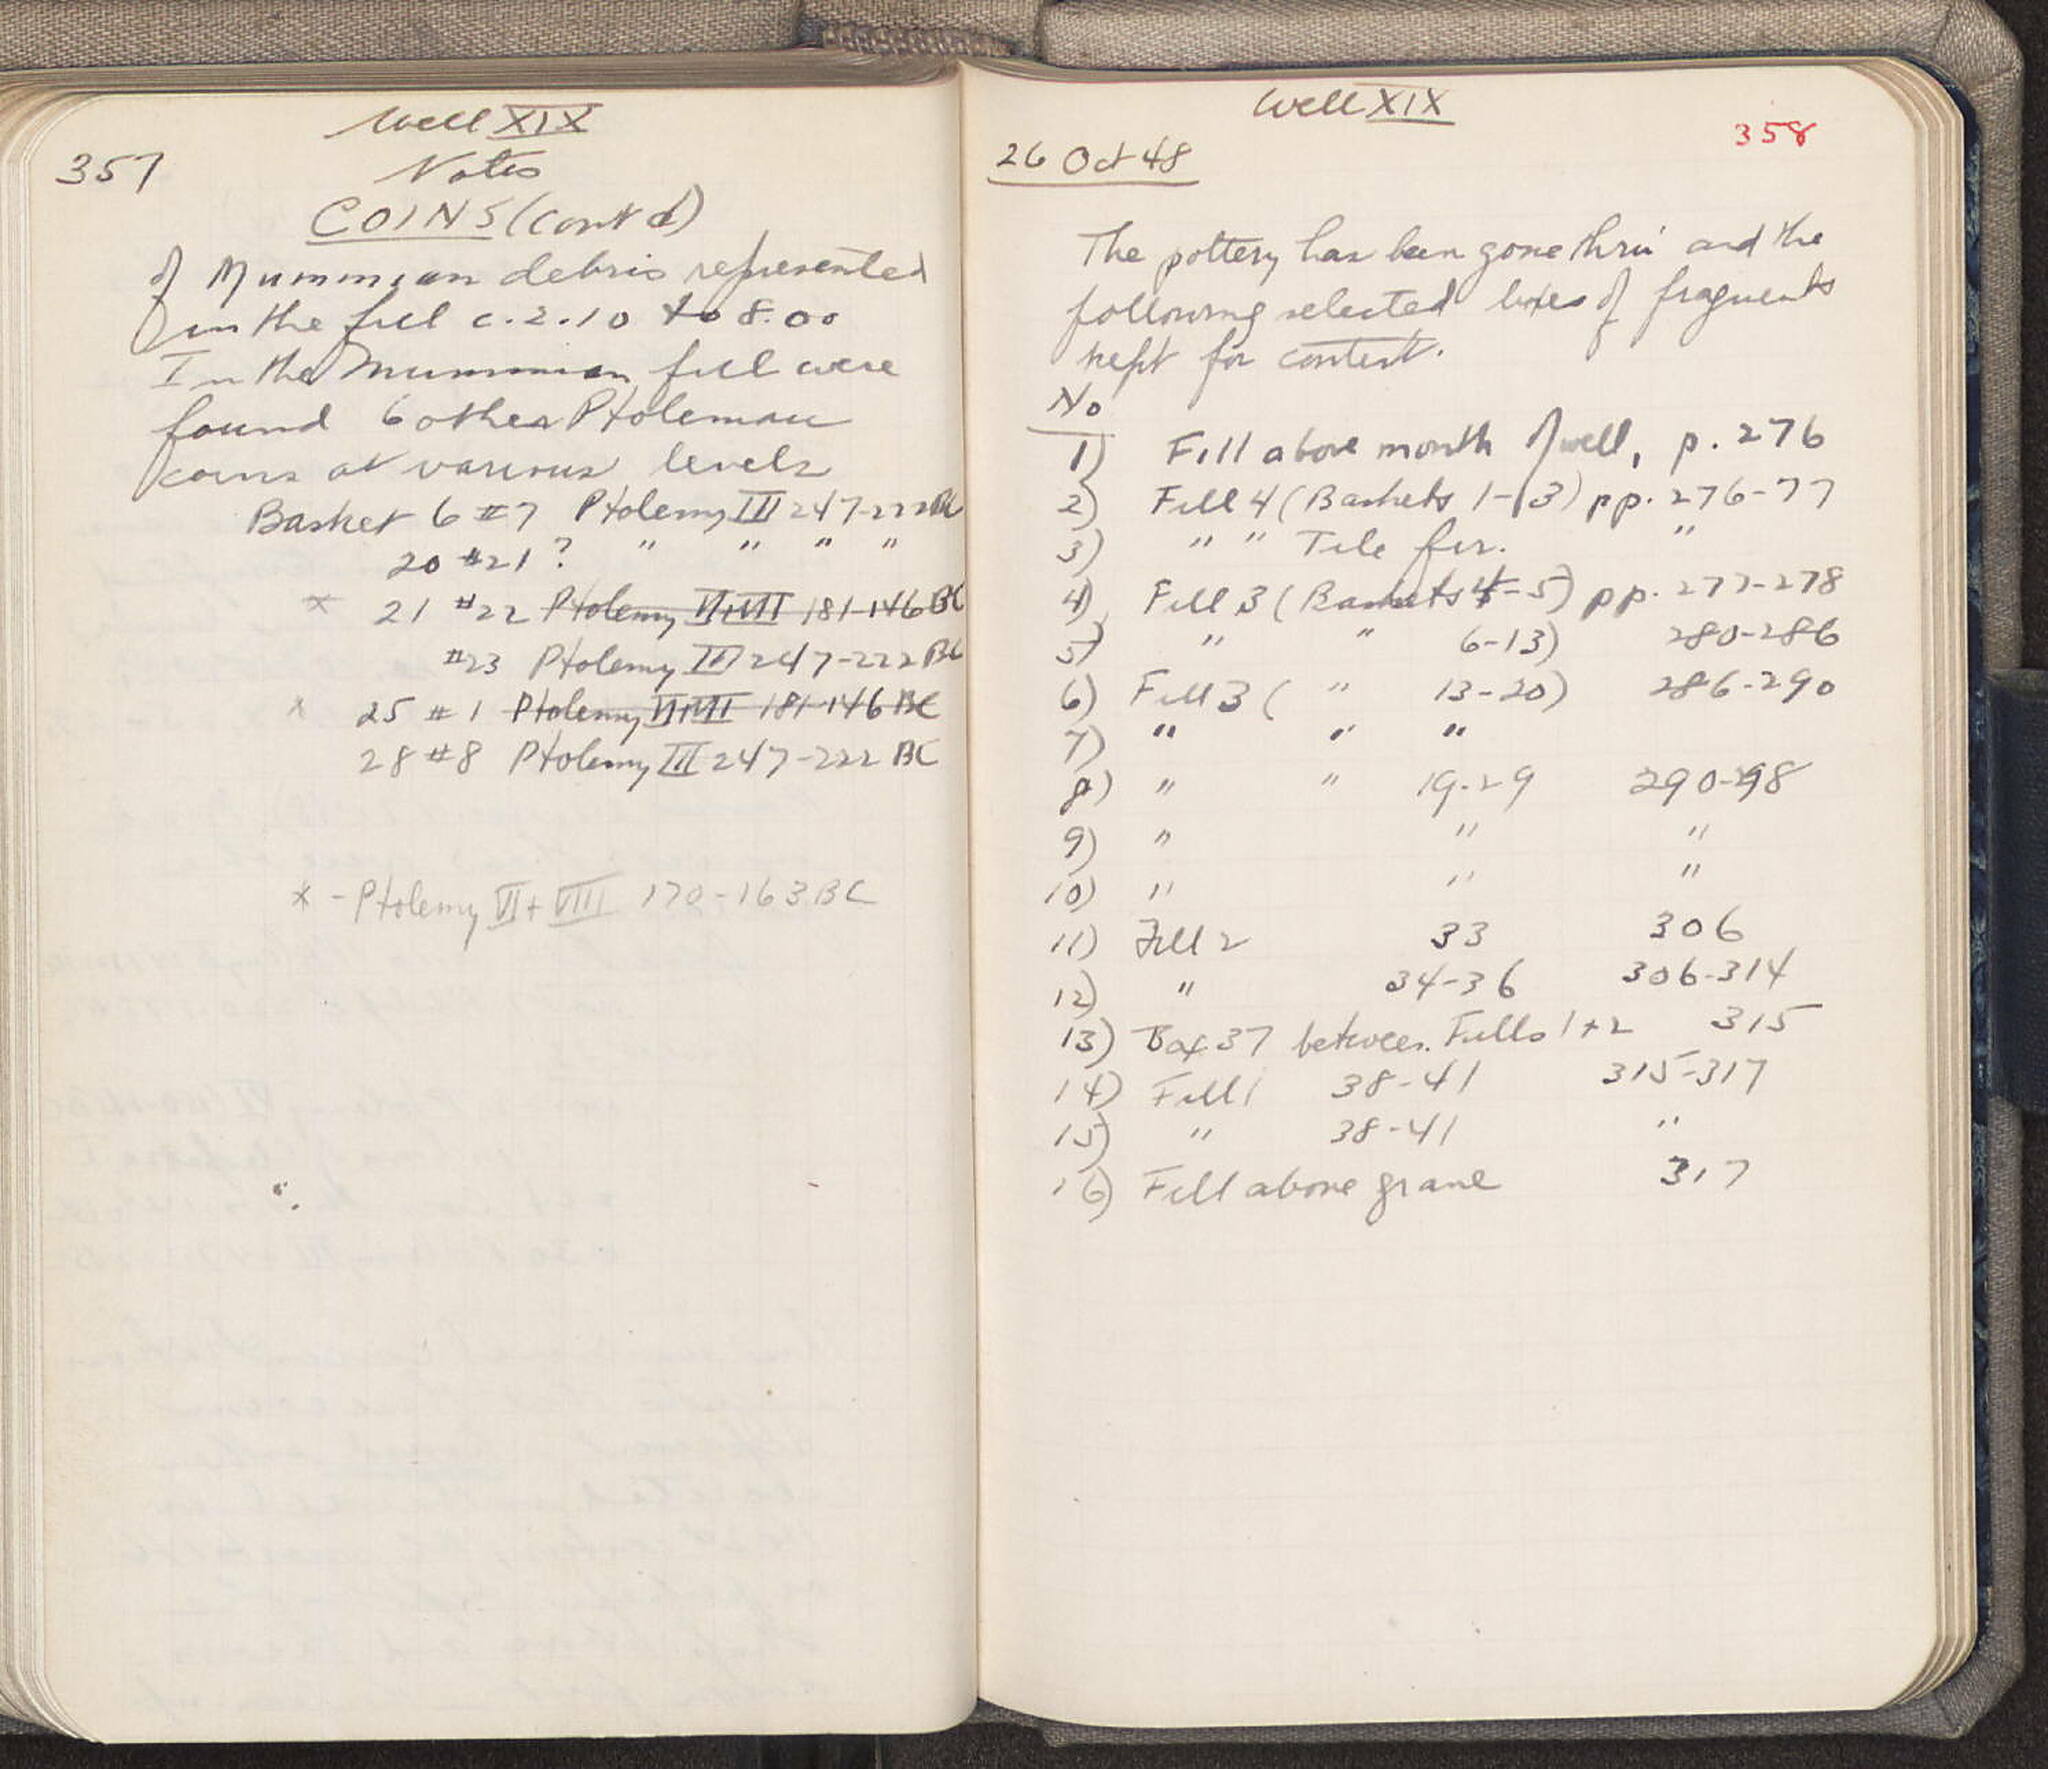 Well XIX
357
Notes
COINS (cont'd)
of Mummian debris represented
in the fill c. 2.10 to 8.00
In the Mummian fill were
found 6 other Ptolemaic
coins at various levels
Basket 6 #7 Ptolemy III 247-222 BC
20 #21 ? " " " "
* 21 #22 Ptolemy VI+VII 181-146 BC
#23 Ptolemy III 247-222 BC
* 25 #1 Ptolemy VI+VII 181-146 BC
28 #8 Ptolemy III 247-222 BC
* - Ptolemy VI + VIII 170-163 BC
Well XIX
358
26 Oct 48
The pottery has been gone thru and the
following selected boxes of fragments
kept for context.
No
1) Fill above mouth of well, p. 276
2) Fill 4 (Baskets 1-3) pp. 276-77
3) " " Tile fr. "
4) Fill 3 (Baskets 4-5) pp. 277-278
5) " " 6-13) 280-286
6) Fill 3 ( " 13-20) 286-290
7) " " "
8) " " 19-29 290-98
9) " " "
10) " " "
11) Fill 2 33 306
12) " 34-36 306-314
13) Box 37 between Fills 1+2 315
14) Fill 1 38-41 315-317
15) " 38-41 "
16) Fill above grave 317